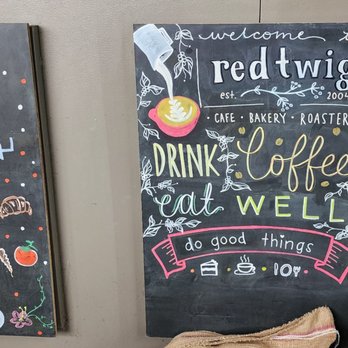 welcome t
redtwig
est. 2004
CAFE • BAKERY • ROASTER
DRINK Coffee
eat WELL
do good things